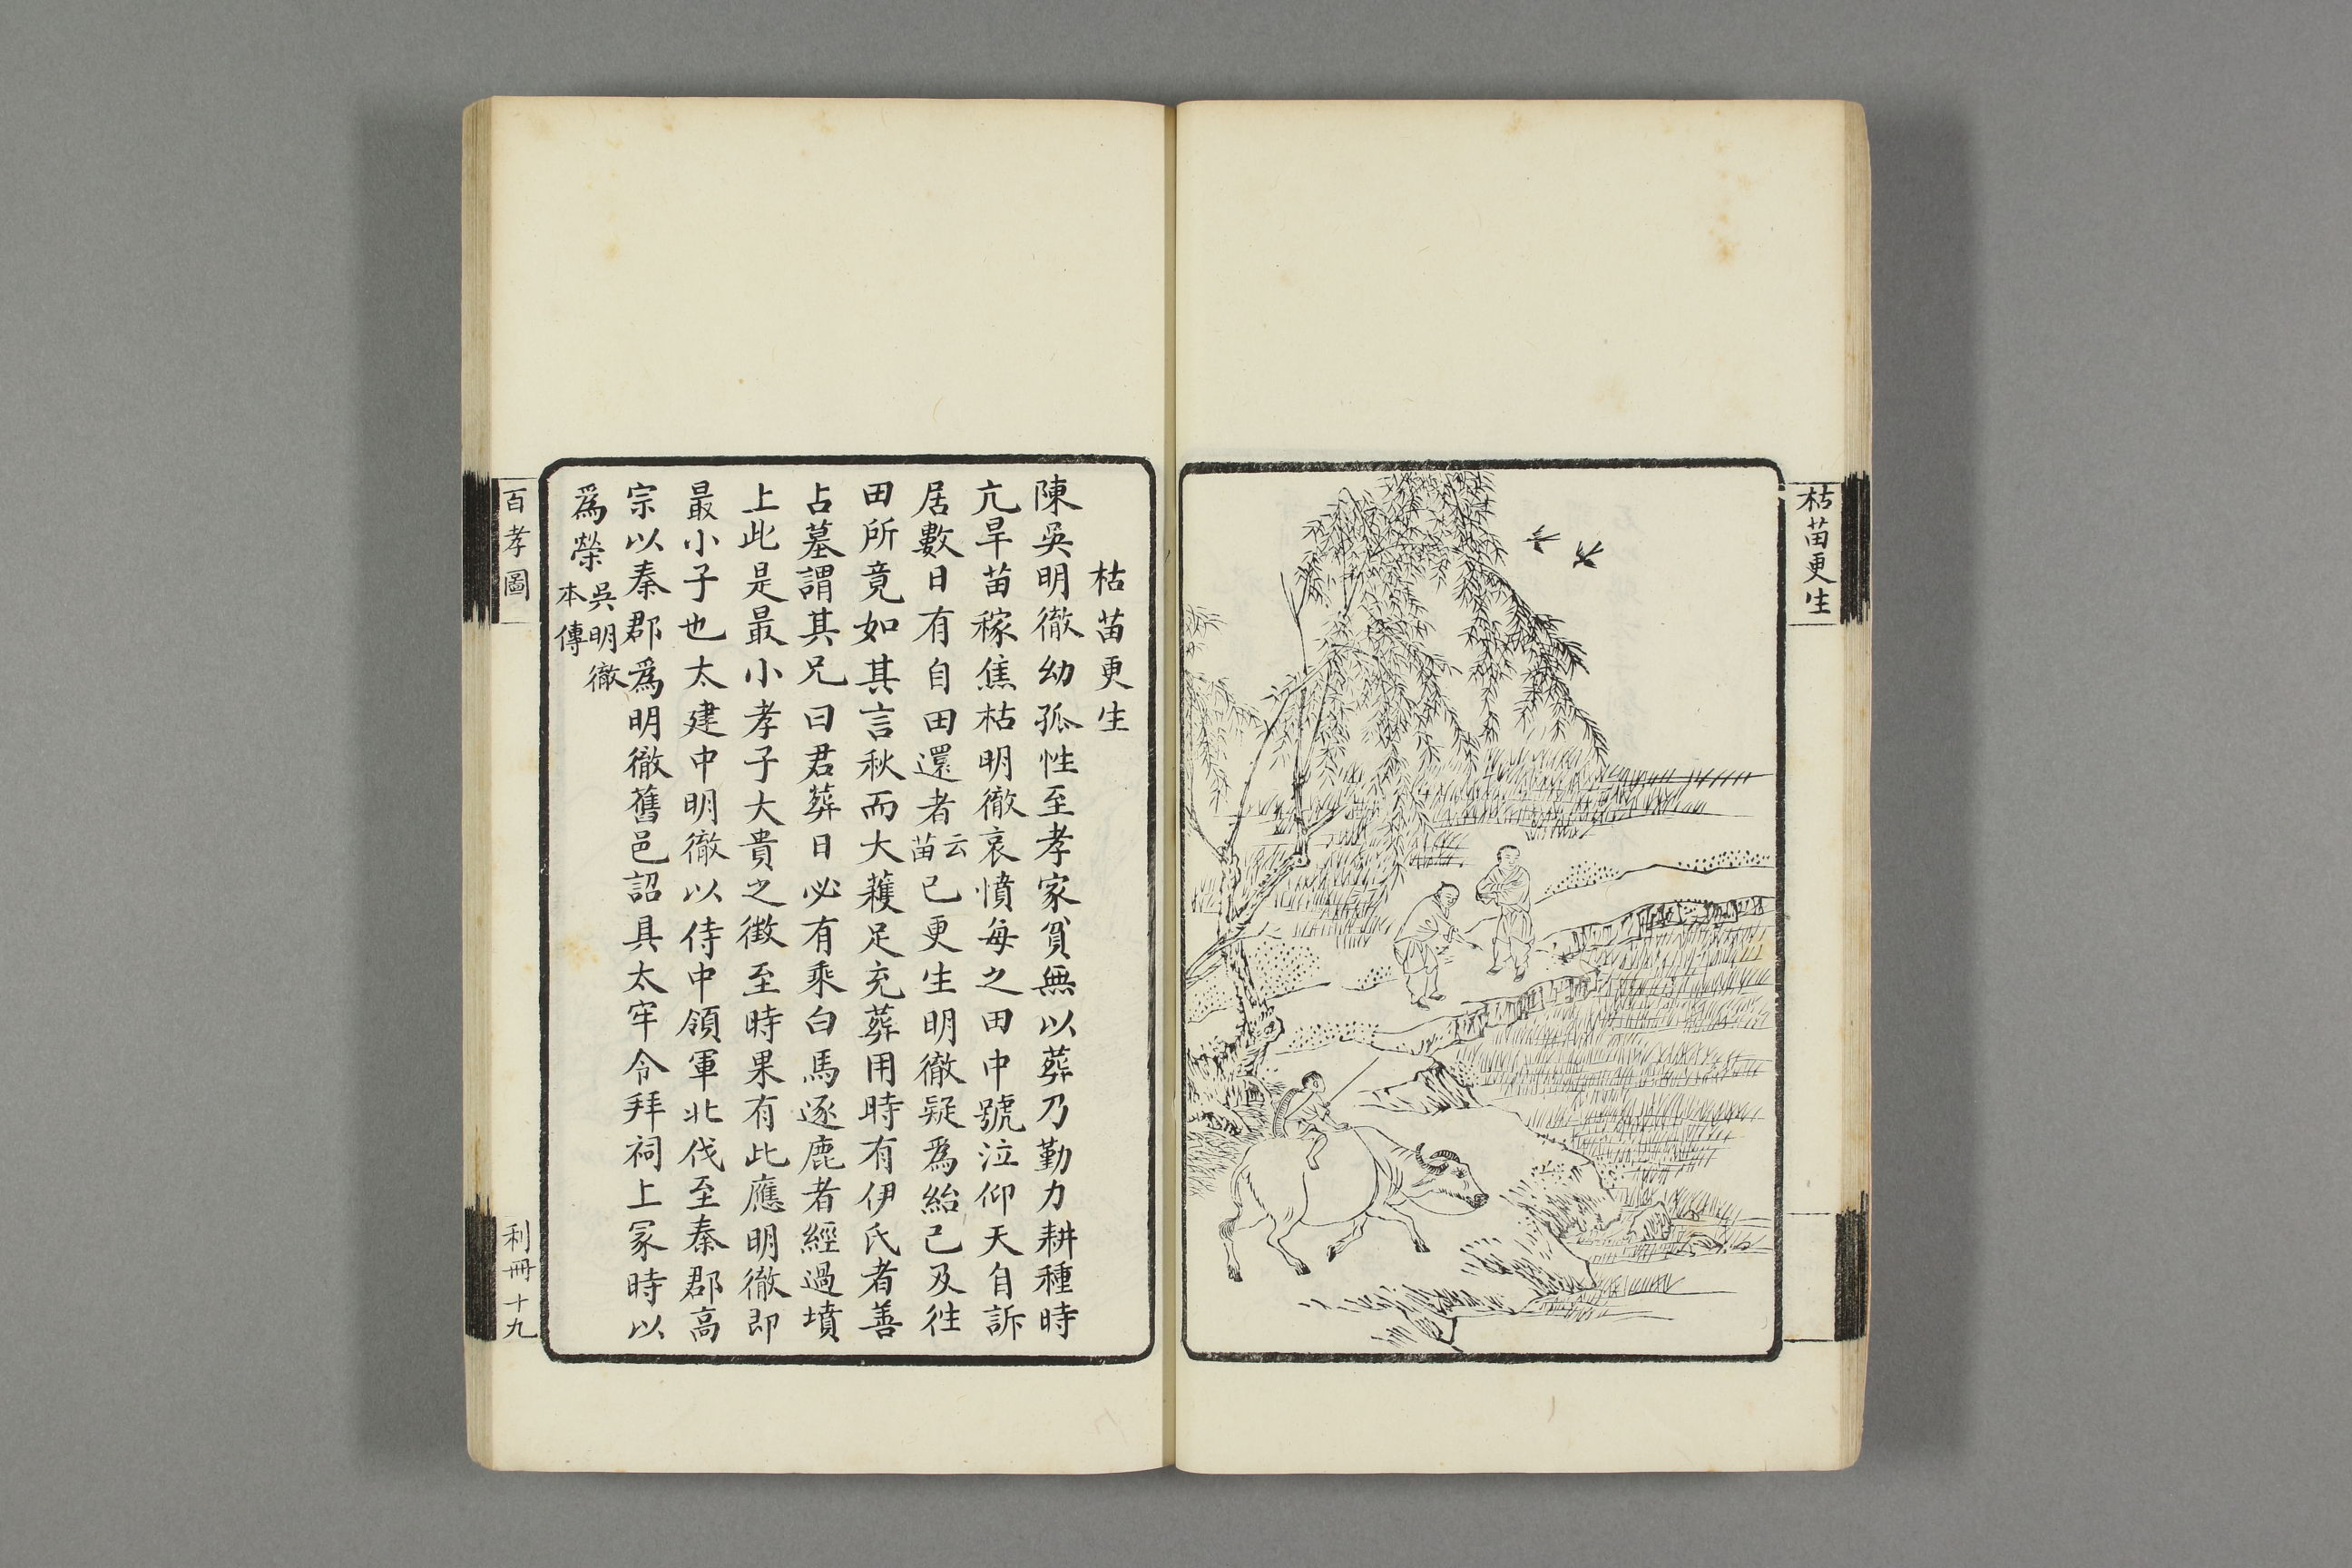 枯苗更生
枯苗更生
陳吳明徹幼孤性至孝家貧無以葬乃勤力耕種時
亢旱苗稼焦枯明徹哀憤每之田中號泣仰天自訴
居數日有自田還者云苗已更生明徹疑爲紿己及往
田所竟如其言秋而大穫足充葬用時有伊氏者善
占墓謂其兄曰君葬日必有乘白馬逐鹿者經過墳
上此是最小孝子大貴之徵至時果有此應明徹即
最小子也太建中明徹以侍中領軍北伐至秦郡高
宗以秦郡爲明徹舊邑詔具太牢令拜祠上冢時以
爲榮吳明徹本傳
百孝圖
利冊十九